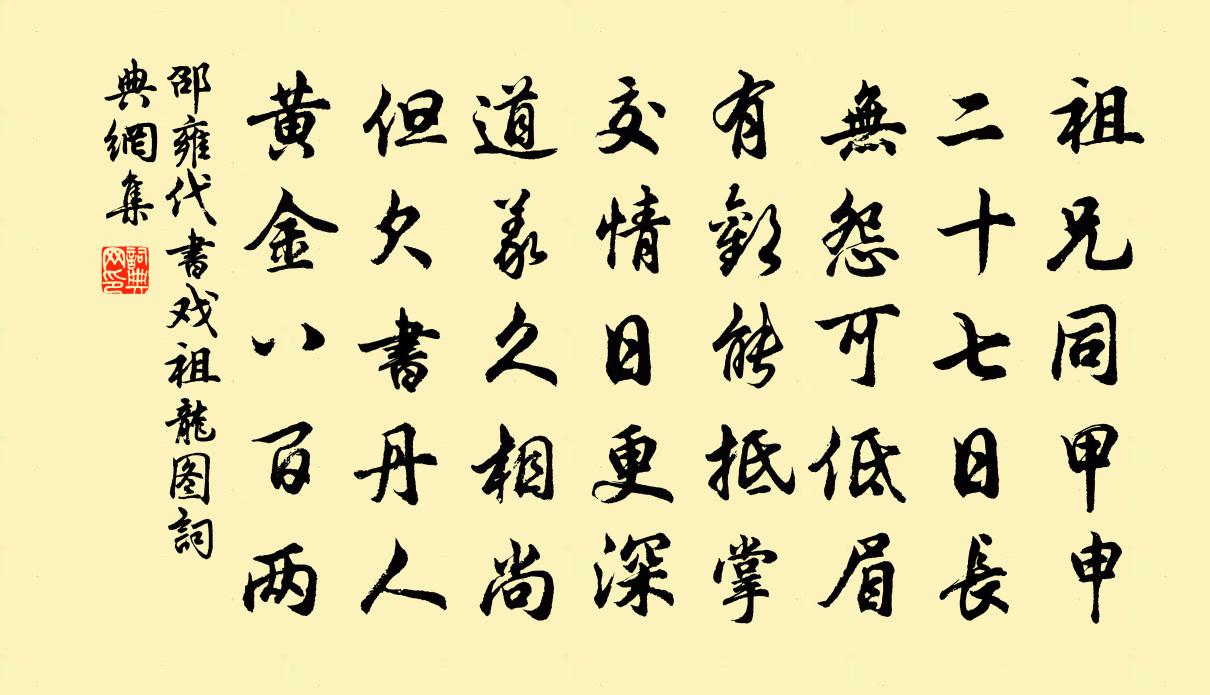 祖兄同甲申
二十七日長
無怨可低眉
有歡能抵掌
交情日更深
道義久相尚
但欠書丹人
黄金八百两
邵雍代書戏祖龍图詞
典網集
詞典
网印